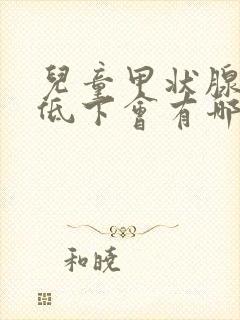 兒童甲状腺
低下會有哪
和曉